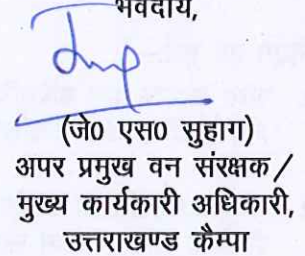 भवदीय,
(जे0 एस0 सुहाग)
अपर प्रमुख वन संरक्षक/
मुख्य कार्यकारी अधिकारी,
उत्तराखण्ड कैम्पा